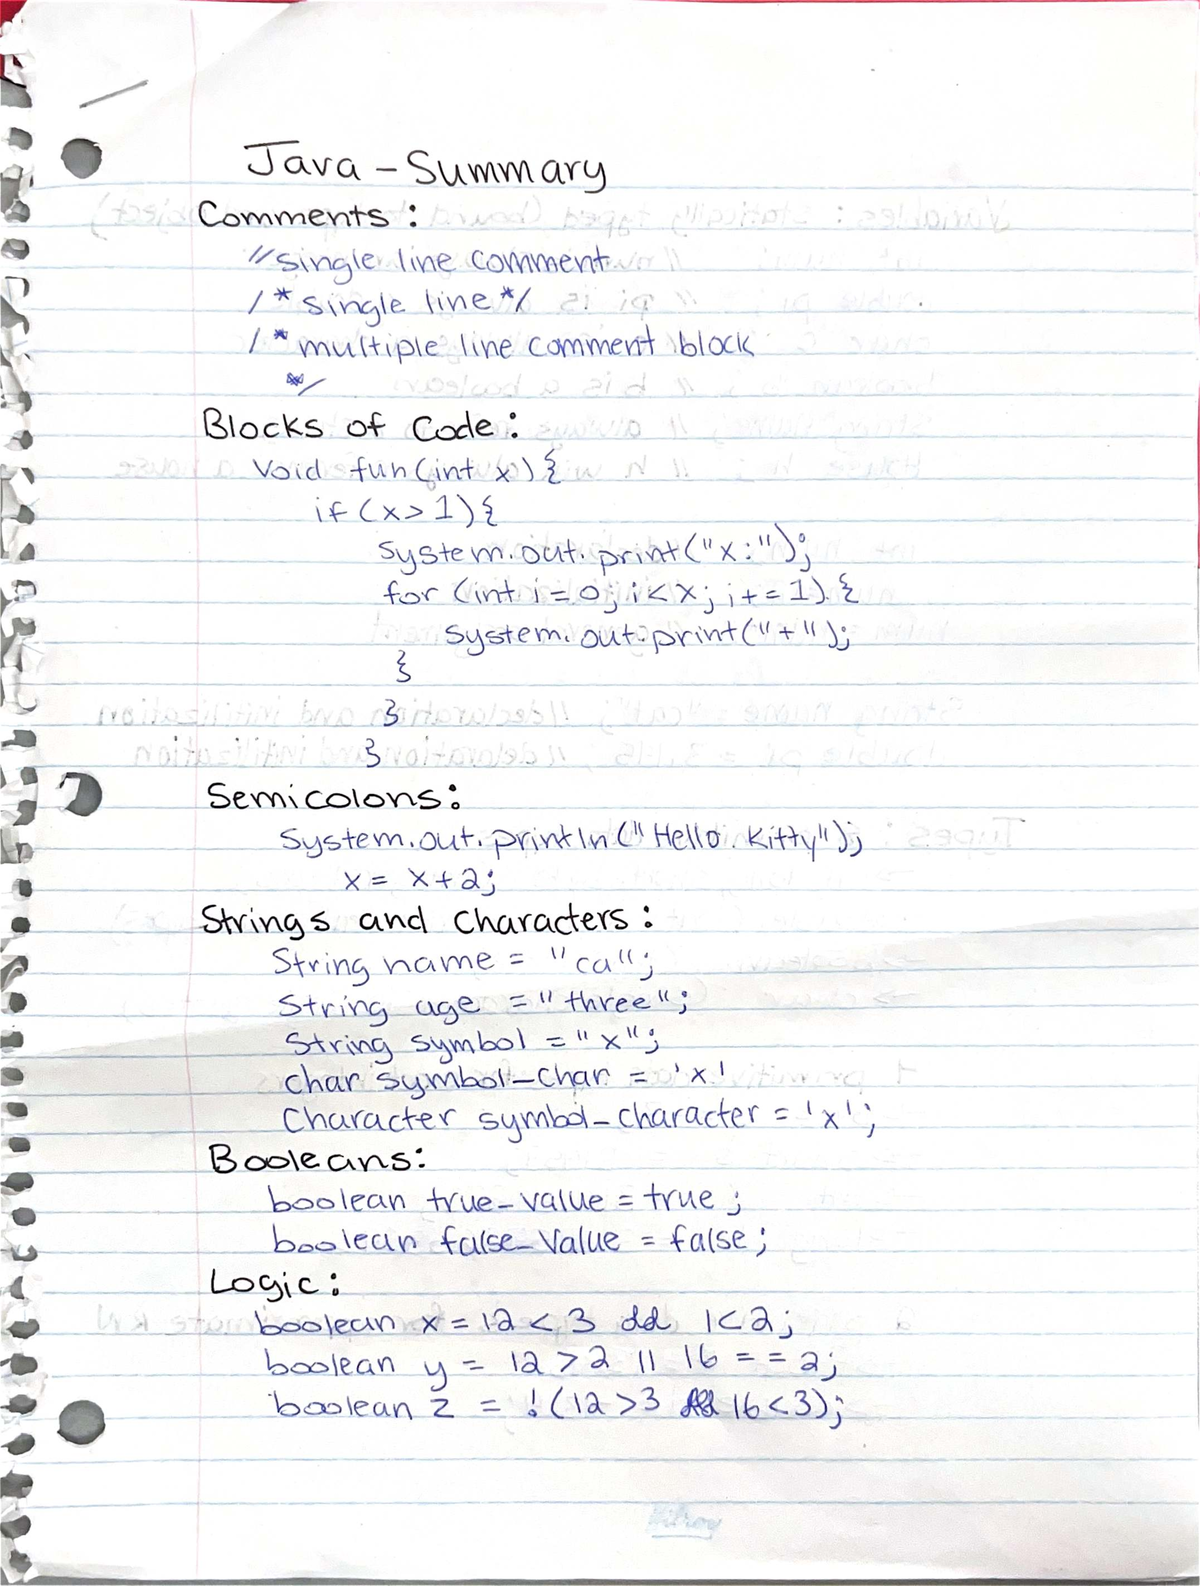 Java - Summary
Comments :
// single line comment
/* single line */
/* multiple line comment block
*/
Blocks of Code :
void fun (int x) {
if (x > 1) {
system.out.print("x:");
for (int i = 0; i < x; i += 1) {
system.out.print("+");
}
}
}
Semicolons:
System.out.println("Hello Kitty");
x = x+2;
Strings and Characters :
String name = "ca";
String age = "three";
String symbol = "x";
char symbol_char = 'x'
Character symbol_character = 'x';
Booleans:
boolean true_value = true ;
boolean false_value = false ;
Logic :
boolean x = 12 < 3 && 1<2;
boolean y = 12 > 2 || 16 == 2;
boolean z = !(12 >3 && 16<3);
Hilroy